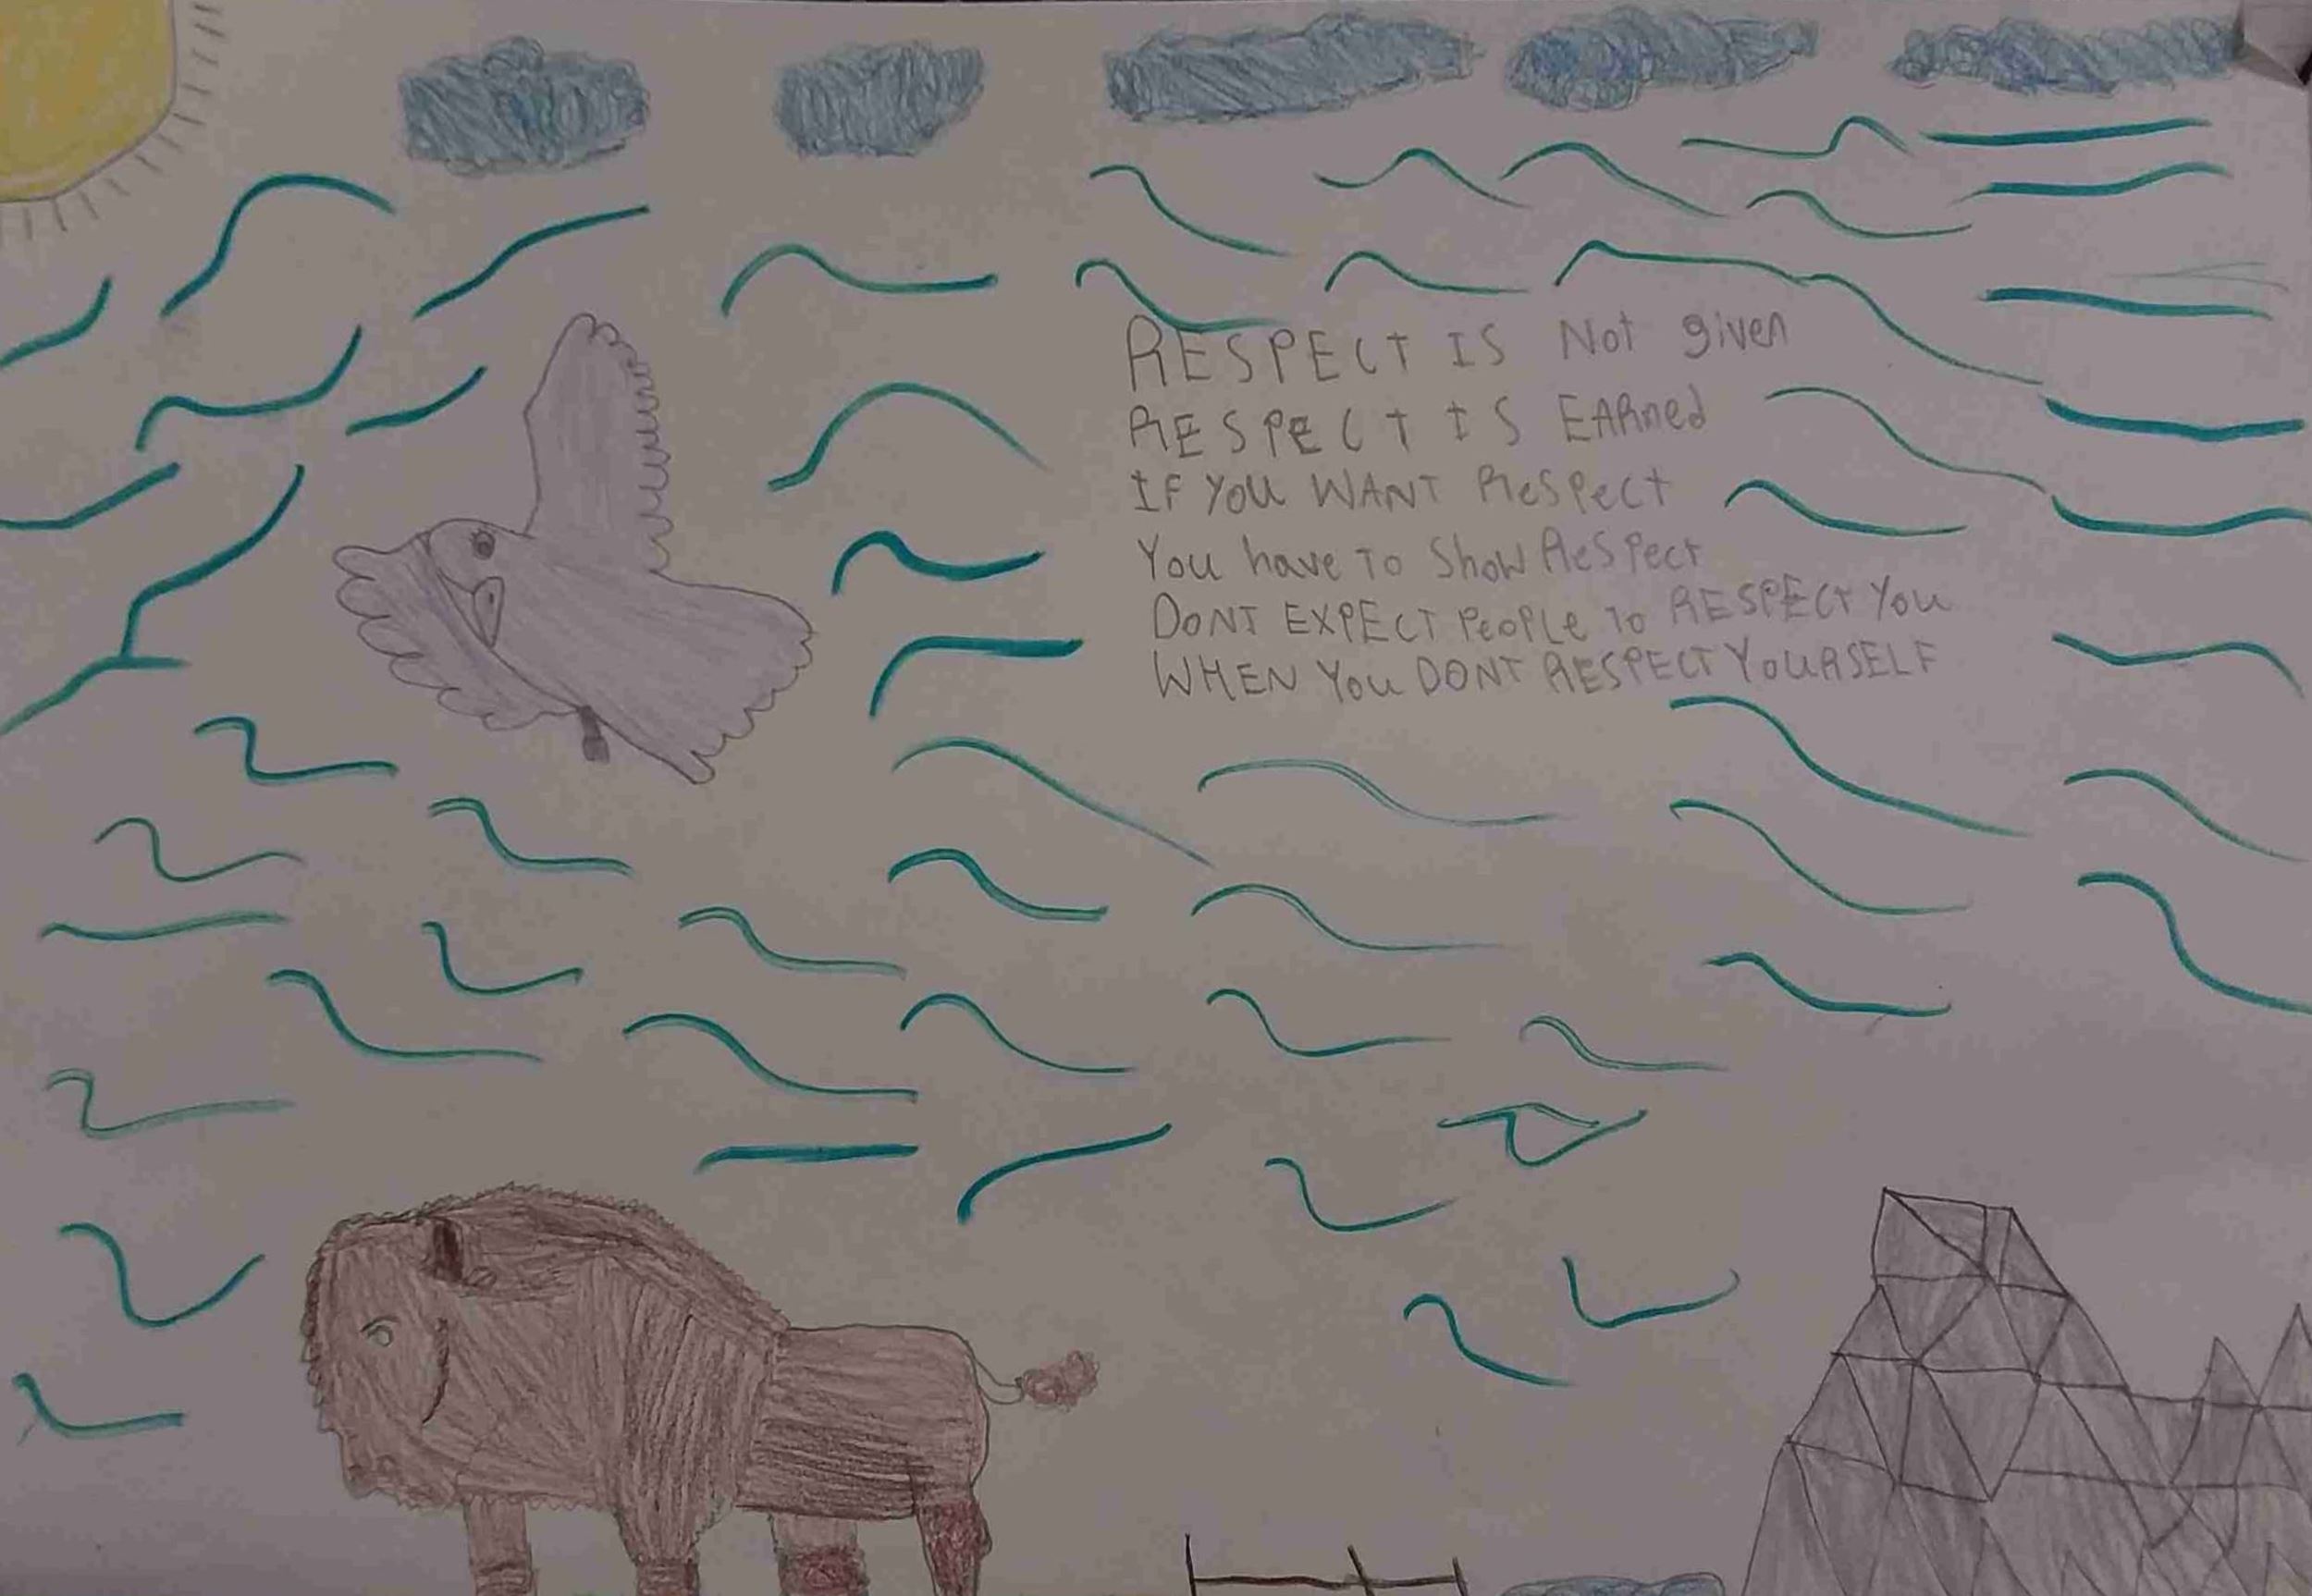 RESPECT IS Not given
RESPECT IS EARned
IF YOU WANT Respect
You have To Show Respect
DONT EXPECT PeoPLe To RESPECT You
WHEN You DONT RESPECT YOURSELF